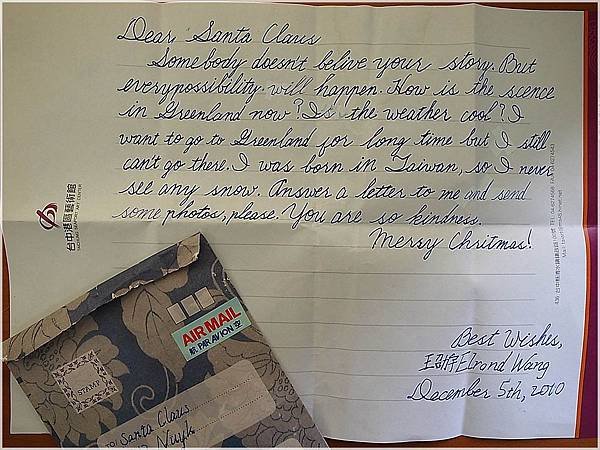 Dear Santa Claus
Somebody doesn't belive your story. But
everypossibility will happen. How is the scence
in Greenland now? Is the weather cool? I
want to go to Greenland for long time but I still
can't go there. I was born in Taiwan, so I never
see any snow. Answer a letter to me and send
some photos, please. You are so kindness.
Merry Chritmas!
Best Wishes,
Elrond Wang
December 5th, 2010
台中港區藝術館
TAICHUNG SEAPORT ART CENTER
AIR MAIL
航 PAR AVION 空
STAMP
TO: Santa Claus